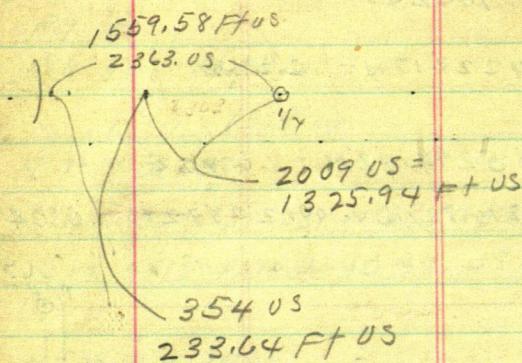 1559.58 Ft US
2363.US
1/4
2009 US =
1325.94 Ft US
354 US
233.64 Ft US